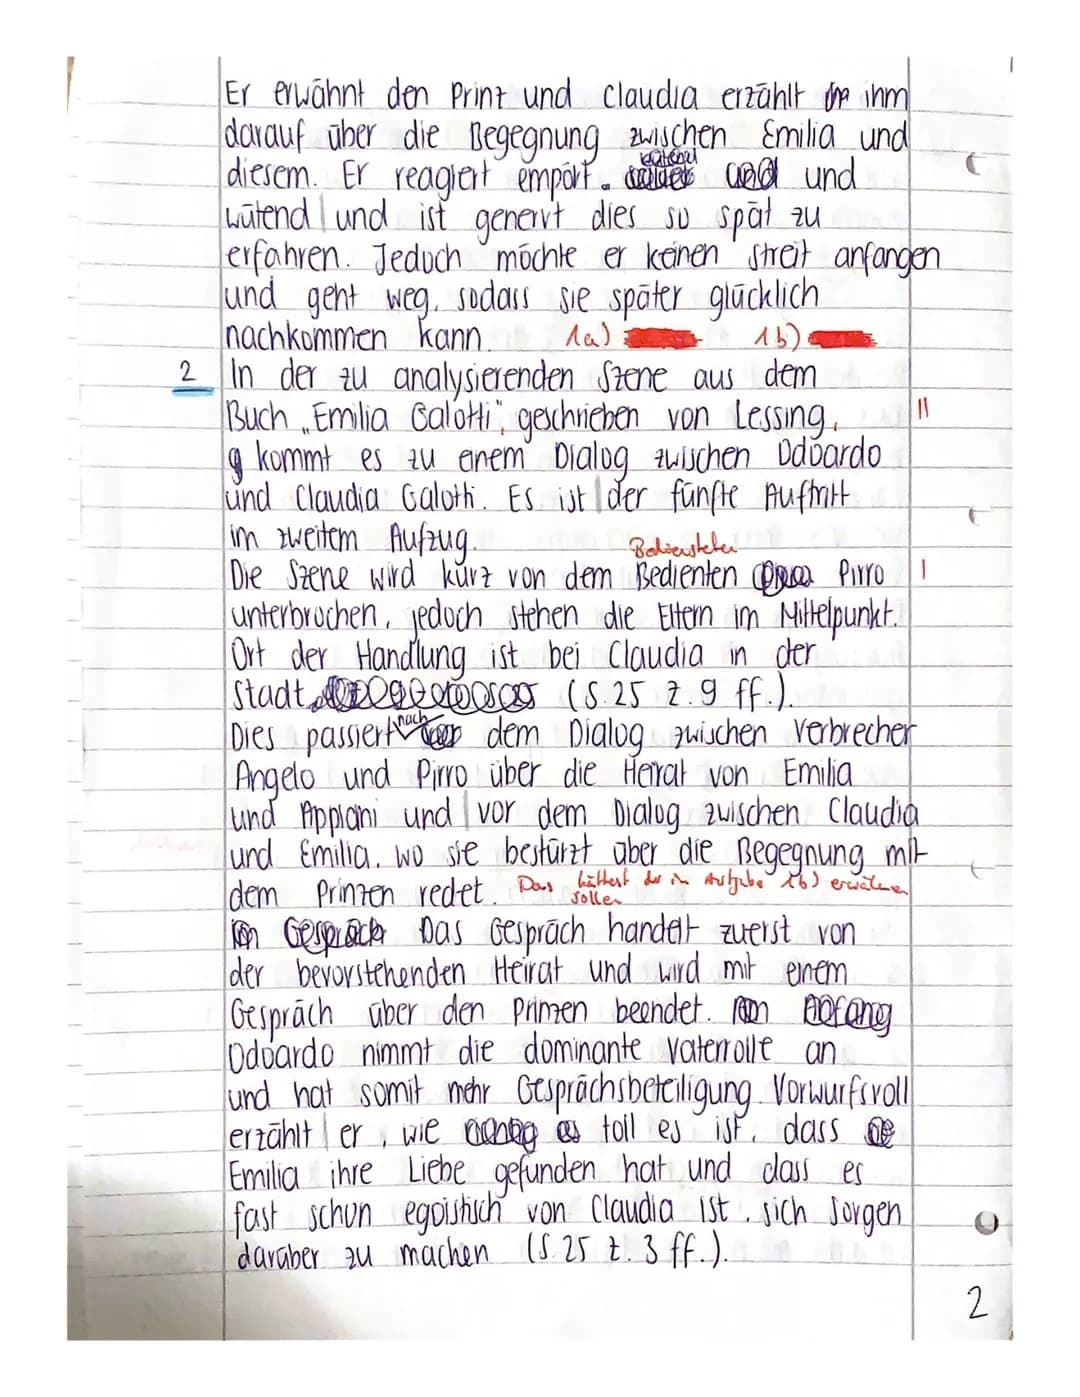 Er erwähnt den Prinz und Claudia erzählt ihm
darauf über die Begegnung zwischen Emilia und
diesem. Er reagiert empört. und
wütend und ist genervt dies so spät zu
erfahren. Jedoch möchte er keinen Streit anfangen
und geht weg, sodass sie später glücklich
nachkommen kann. 1a) 1b)
2 In der zu analysierenden Szene aus dem
Buch „Emilia Galotti", geschrieben von Lessing,
kommt es zu einem Dialog zwischen Odoardo
und Claudia Galotti. Es ist der fünfte Auftritt
im zweitem Aufzug.
Bediensteter
Die Szene wird kurz von dem Bedienten Pirro
unterbrochen, jedoch stehen die Eltern im Mittelpunkt.
Ort der Handlung ist bei Claudia in der
Stadt (S. 25 Z. 9 ff.).
Dies passiert nach dem Dialog zwischen Verbrecher
Angelo und Pirro über die Heirat von Emilia
und Appiani und vor dem Dialog zwischen Claudia
und Emilia, wo sie bestürzt über die Begegnung mit
dem Prinzen redet. Das hättest du in Aufgabe 1b) erwähnen
sollen
Das Gespräch handelt zuerst von
der bevorstehenden Heirat und wird mit einem
Gespräch über den Prinzen beendet.
Odoardo nimmt die dominante Vaterrolle an
und hat somit mehr Gesprächsbeteiligung. Vorwurfsvoll
erzählt er, wie toll es ist, dass
Emilia ihre Liebe gefunden hat und dass es
fast schon egoistisch von Claudia ist, sich Sorgen
darüber zu machen (S. 25 Z. 3 ff.).
2